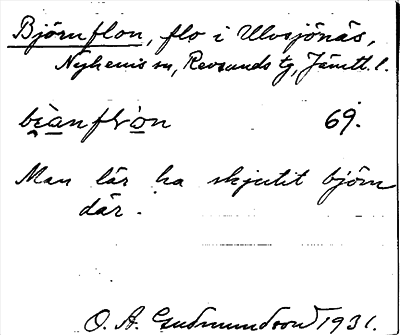 Björnflon, flo i Ulvsjönäs,
Nyhems sn, Revsunds tg, Jämtl. l.
69.
Man lär ha skjutit björn
där.
O. A. Gudmundsson 1931.